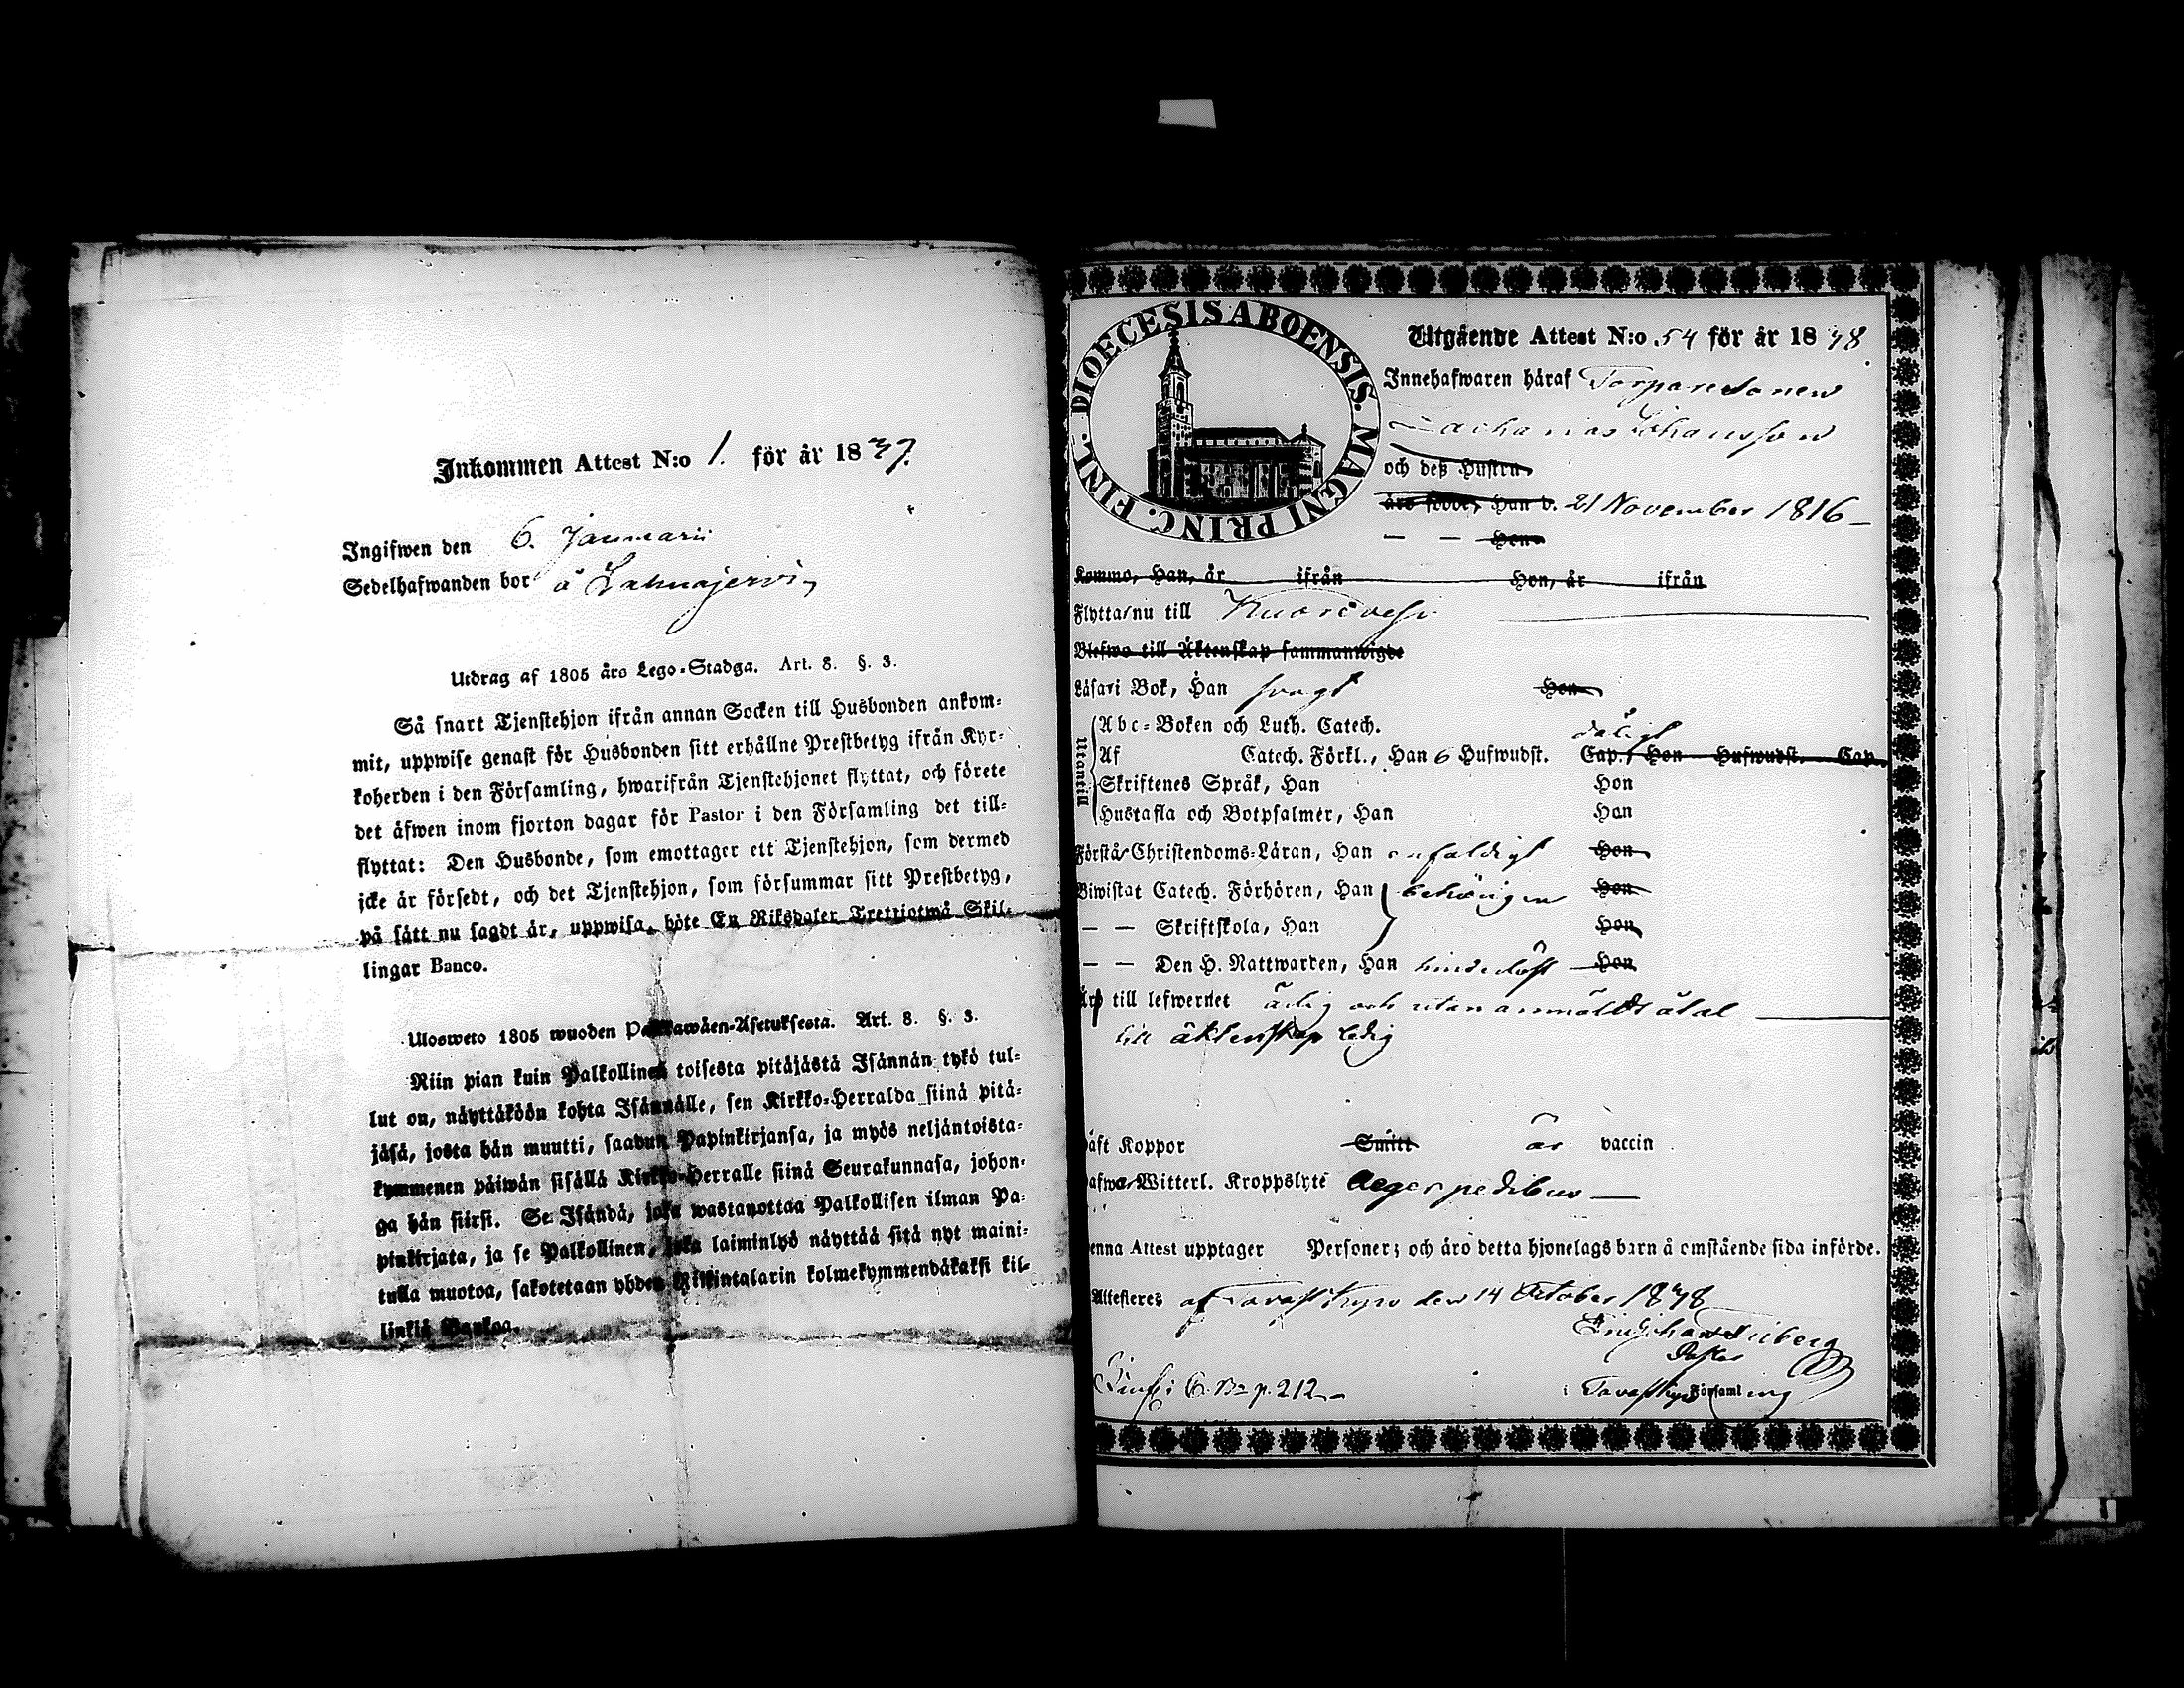 Inkommen Attest N:o 1. för år 1837.
Ingifwen den 6. Januarii
Sedelhafwanden bor å Lahnajerwi
Utdrag af 1805 års Lego-Stadga. Art. 8. §. 3.
Så snart Tjenstehjon ifrån annan Socken till Husbonden ankom-
mit, uppwise genast för Husbonden sitt erhållne Prestbetyg ifrån Kyr-
koherden i den Församling, hwarifrån Tjenstehjonet flyttat, och förete
det äfwen inom fjorton dagar för Pastor i den Församling det till-
flyttat: Den Husbonde, som emottager ett Tjenstehjon, som dermed
icke är försedt, och det Tjenstehjon, som försummar sitt Prestbetyg,
på sätt nu sagdt är, uppwisa, böte En Riksdaler Trettiotwå Skil-
lingar Banco.
Ulosweto 1805 wuoden Palkkawäen-Asetuksesta. Art. 8. §. 3.
Niin pian kuin Palkollinen toisesta pitäjästä Isännän tykö tul-
lut on, näyttäköön kohta Isännälle, sen Kirkko-Herralda siinä pitä-
jäsä, josta hän muutti, saadun Papinkirjansa, ja myös neljäntoista-
kymmenen päiwän sisällä Kirkko-Herralle siinä Seurakunnasa, johon-
ga hän siirsi. Se Isändä, joka wastanottaa Palkollisen ilman Pa-
pinkirjata, ja se Palkollinen, joka laiminlyö näyttää sitä nyt maini-
tulla muotoa, sakotetaan yhden Riikintalarin kolmekymmendäkaksi kil-
linkiä Bankoa.
DIOECESIS ABOENSIS. MAGNI PRINC. FINL.
Utgående Attest N:o 54 för år 1848
Innehafwaren häraf Torparesonen
Zacharias Johansson
och deß Hustru
äro födde, Han d. 21 November 1816
— — Hon
Komme, Han, år ifrån Hon, år ifrån
Flytta nu till Kuorevesi
Blefwo till Äktenskap sammanwigde
Läsa i Bok, Han svagt Hon
Utantill
Abc-Boken och Luth. Catech. dåligt
Af Catech. Förkl., Han 6 Hufwudst. Cap., Hon Hufwudst. Cap.
Skriftenes Språk, Han Hon
Hustafla och Botpsalmer, Han Hon
Förstå Christendoms-Läran, Han enfaldigt Hon
Biwistat Catech. Förhören, Han behörigen Hon
— — Skriftskola, Han Hon
— — Den H. Nattwarden, Han hinderlöst Hon
till lefwernet ärlig och utan anmäldt åtal
till äktenskap ledig
äft Koppor Smitt är vaccin
afwa Witterl. Kroppslyte Aeger pedibus
enna Attest upptager Personer; och äro detta hjonelags barn å omstående sida införde.
Attesteres af Tavastkyro den 14 October 1848
Pastor
p. 212
i Tavastkyro Församling